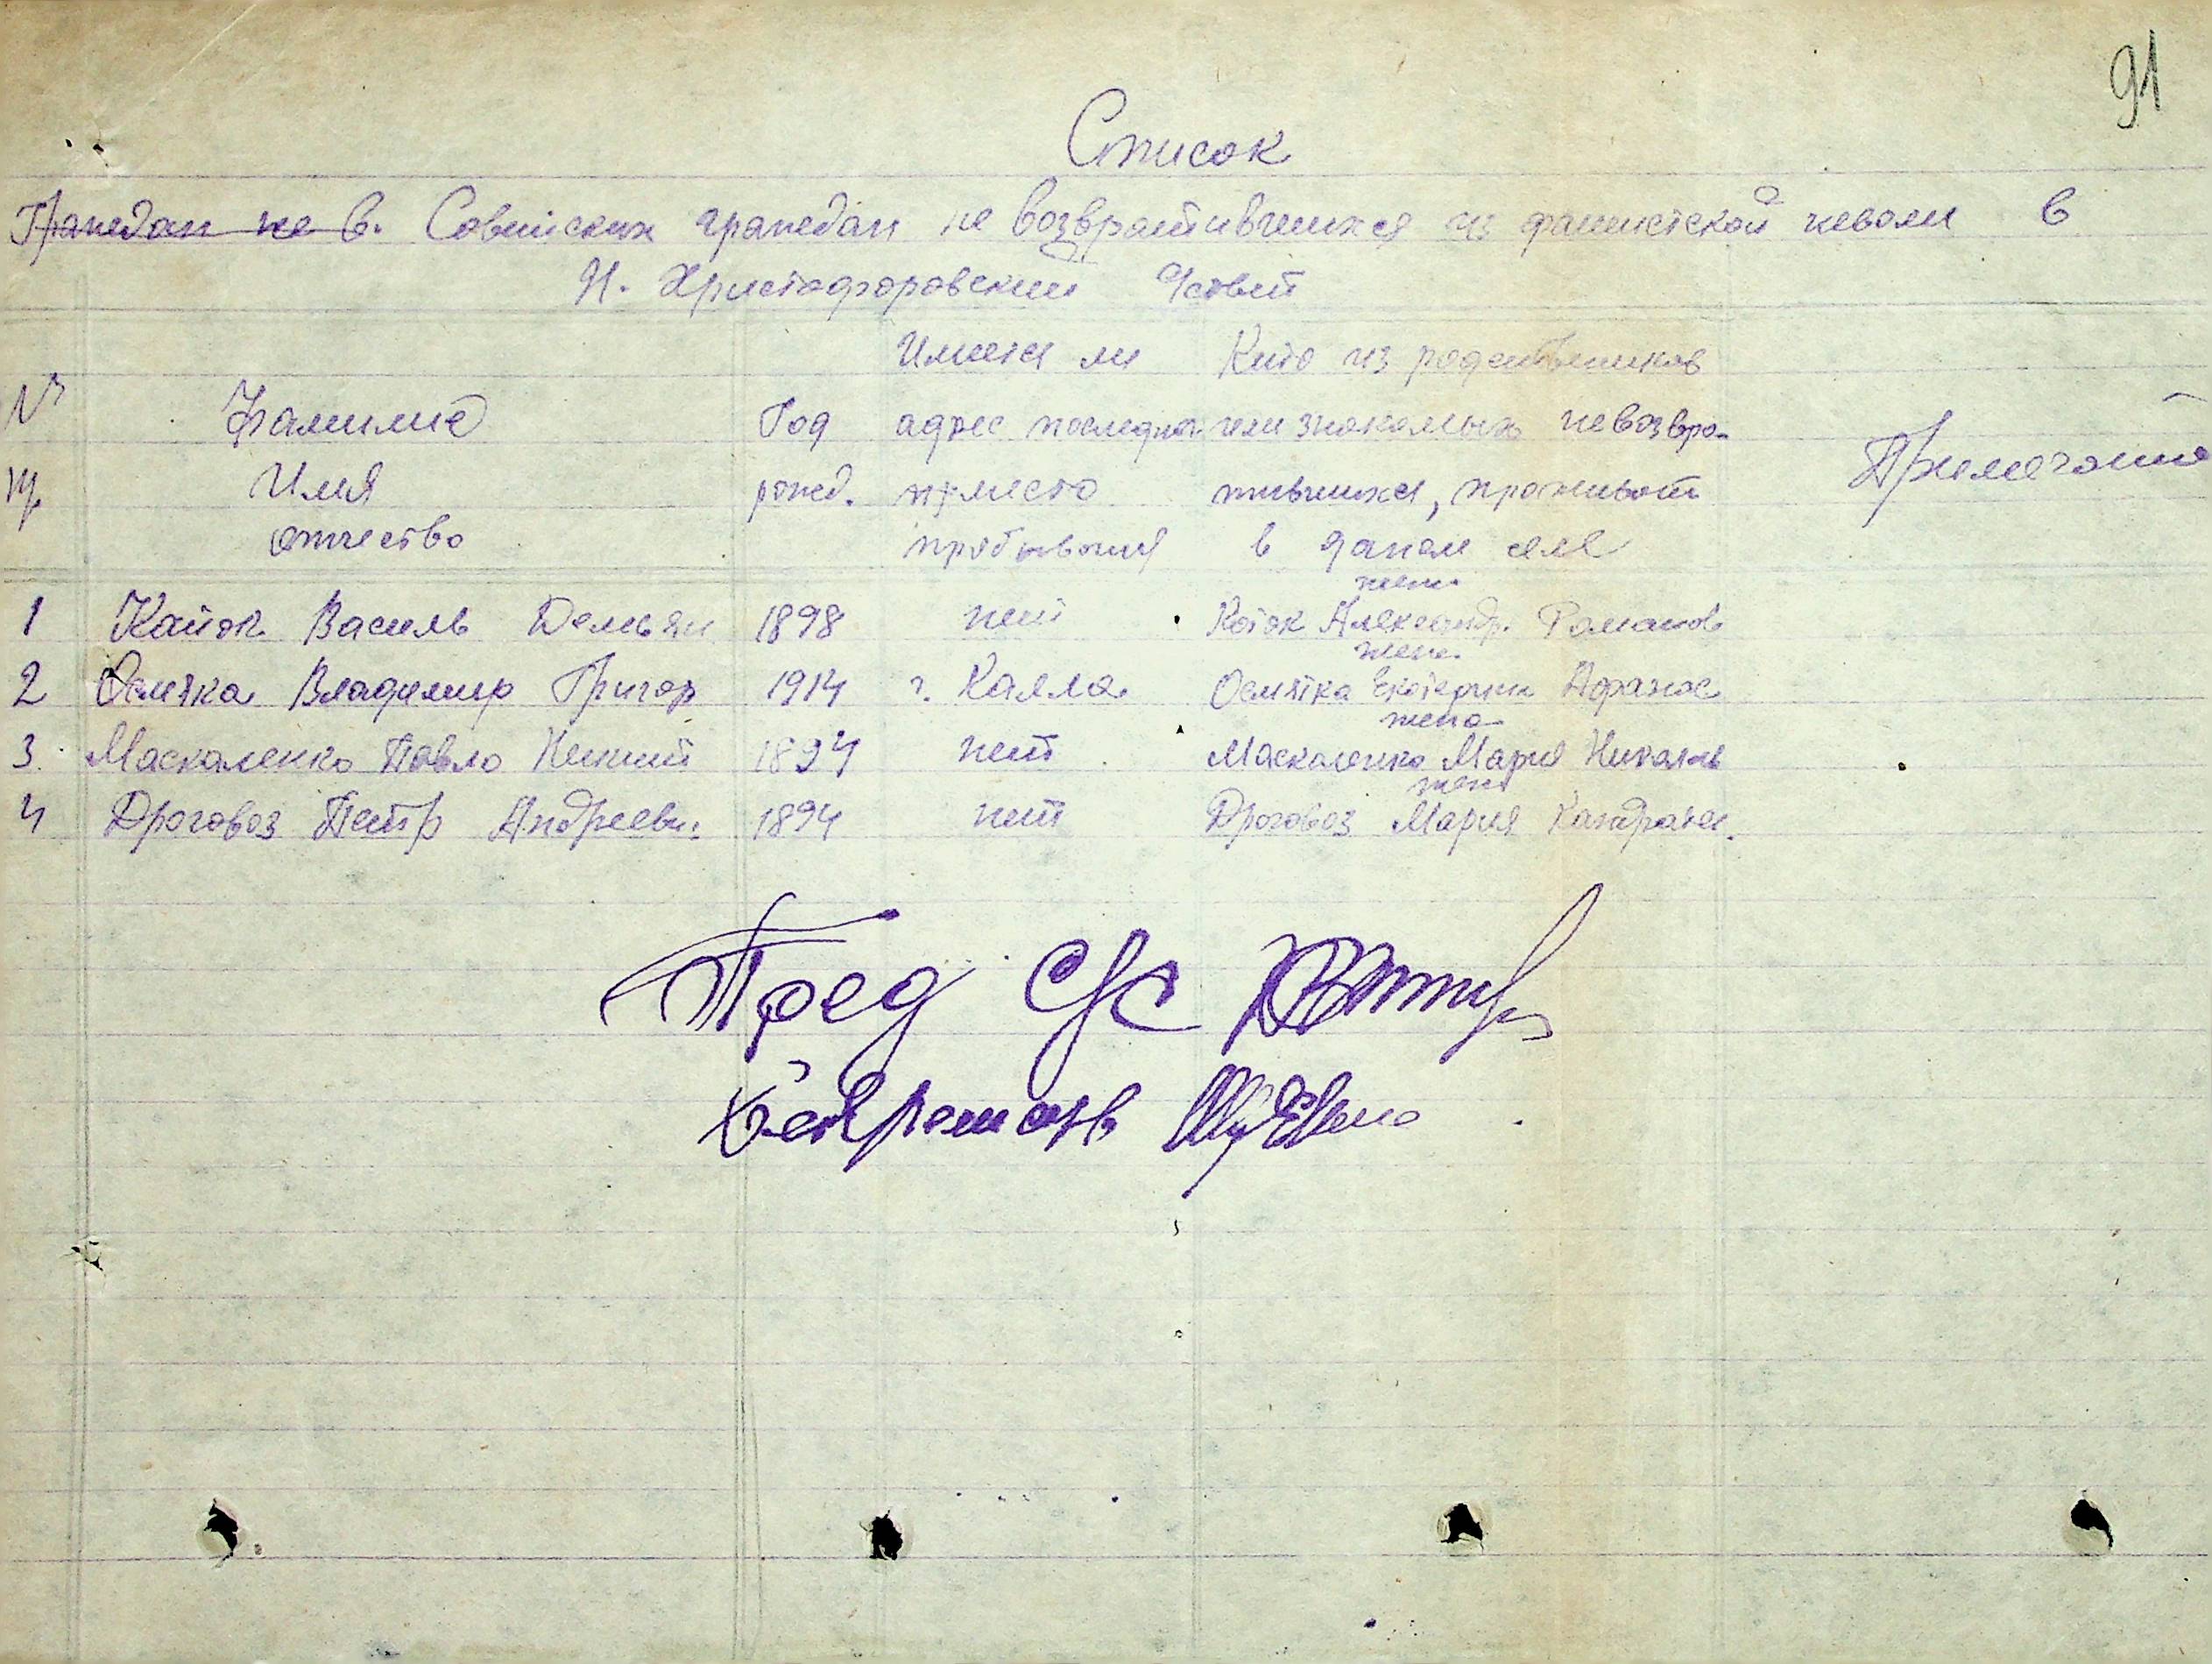 91
Список
Граждан не в. Советских граждан не возвратившихся из фашистской неволи в
Н. Христофоровский
№ Фамилие Имя отчество
Год рожд.
Имеется ли адрес последнего место пребывания
Кто из родственников или знакомых невозвратившихся, проживает в даном селе
Примечание
1 Василь Демьян 1898 нет жена Коток Александр. Романов
2 Осмятка Владимир Григор 1914 г. Калла жена Осмятка Екатерина Афанас
3. Маскаленко Павло 1894 нет жена Маскаленко Мария Николь
4 Дроговоз Петр Андреевич 1894 нет жена Дроговоз Мария Кандратев.
Пред С/С
Секретарь